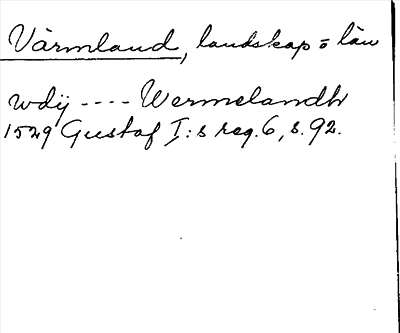 Värmland, landskap o län
wdij ---- Wermelandh
1529 Gustaf I:s reg. 6, s. 92.